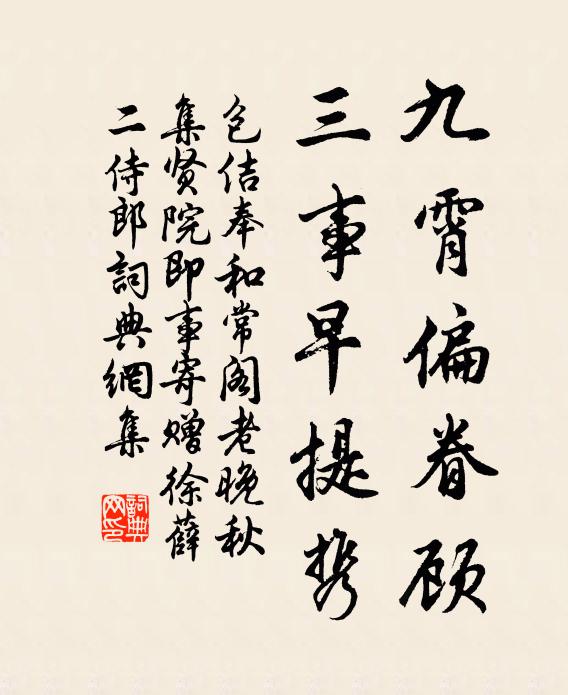 九霄偏眷顾
三事早提携
包佶奉和常阁老晚秋
集贤院即事寄赠徐薛
二侍郎詞典網集
詞典
网印